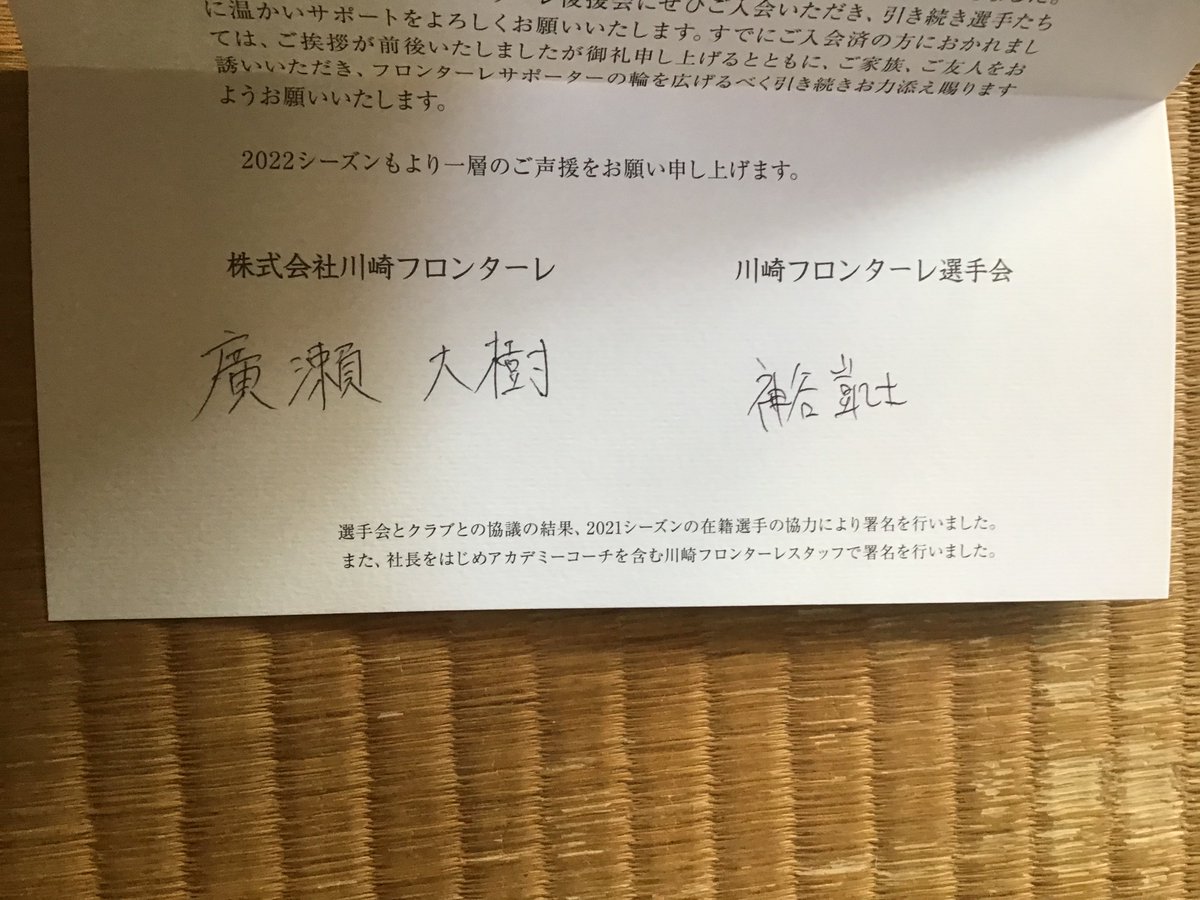 後援会にぜひご入会いただき、引き続き選手たち
に温かいサポートをよろしくお願いいたします。すでにご入会済の方におかれまし
ては、ご挨拶が前後いたしましたが御礼申し上げるとともに、ご家族、ご友人をお
誘いいただき、フロンターレサポーターの輪を広げるべく引き続きお力添え賜ります
ようお願いいたします。
2022シーズンもより一層のご声援をお願い申し上げます。
株式会社川崎フロンターレ 川崎フロンターレ選手会
廣瀬 大樹 神谷 凱士
選手会とクラブとの協議の結果、2021シーズンの在籍選手の協力により署名を行いました。
また、社長をはじめアカデミーコーチを含む川崎フロンターレスタッフで署名を行いました。